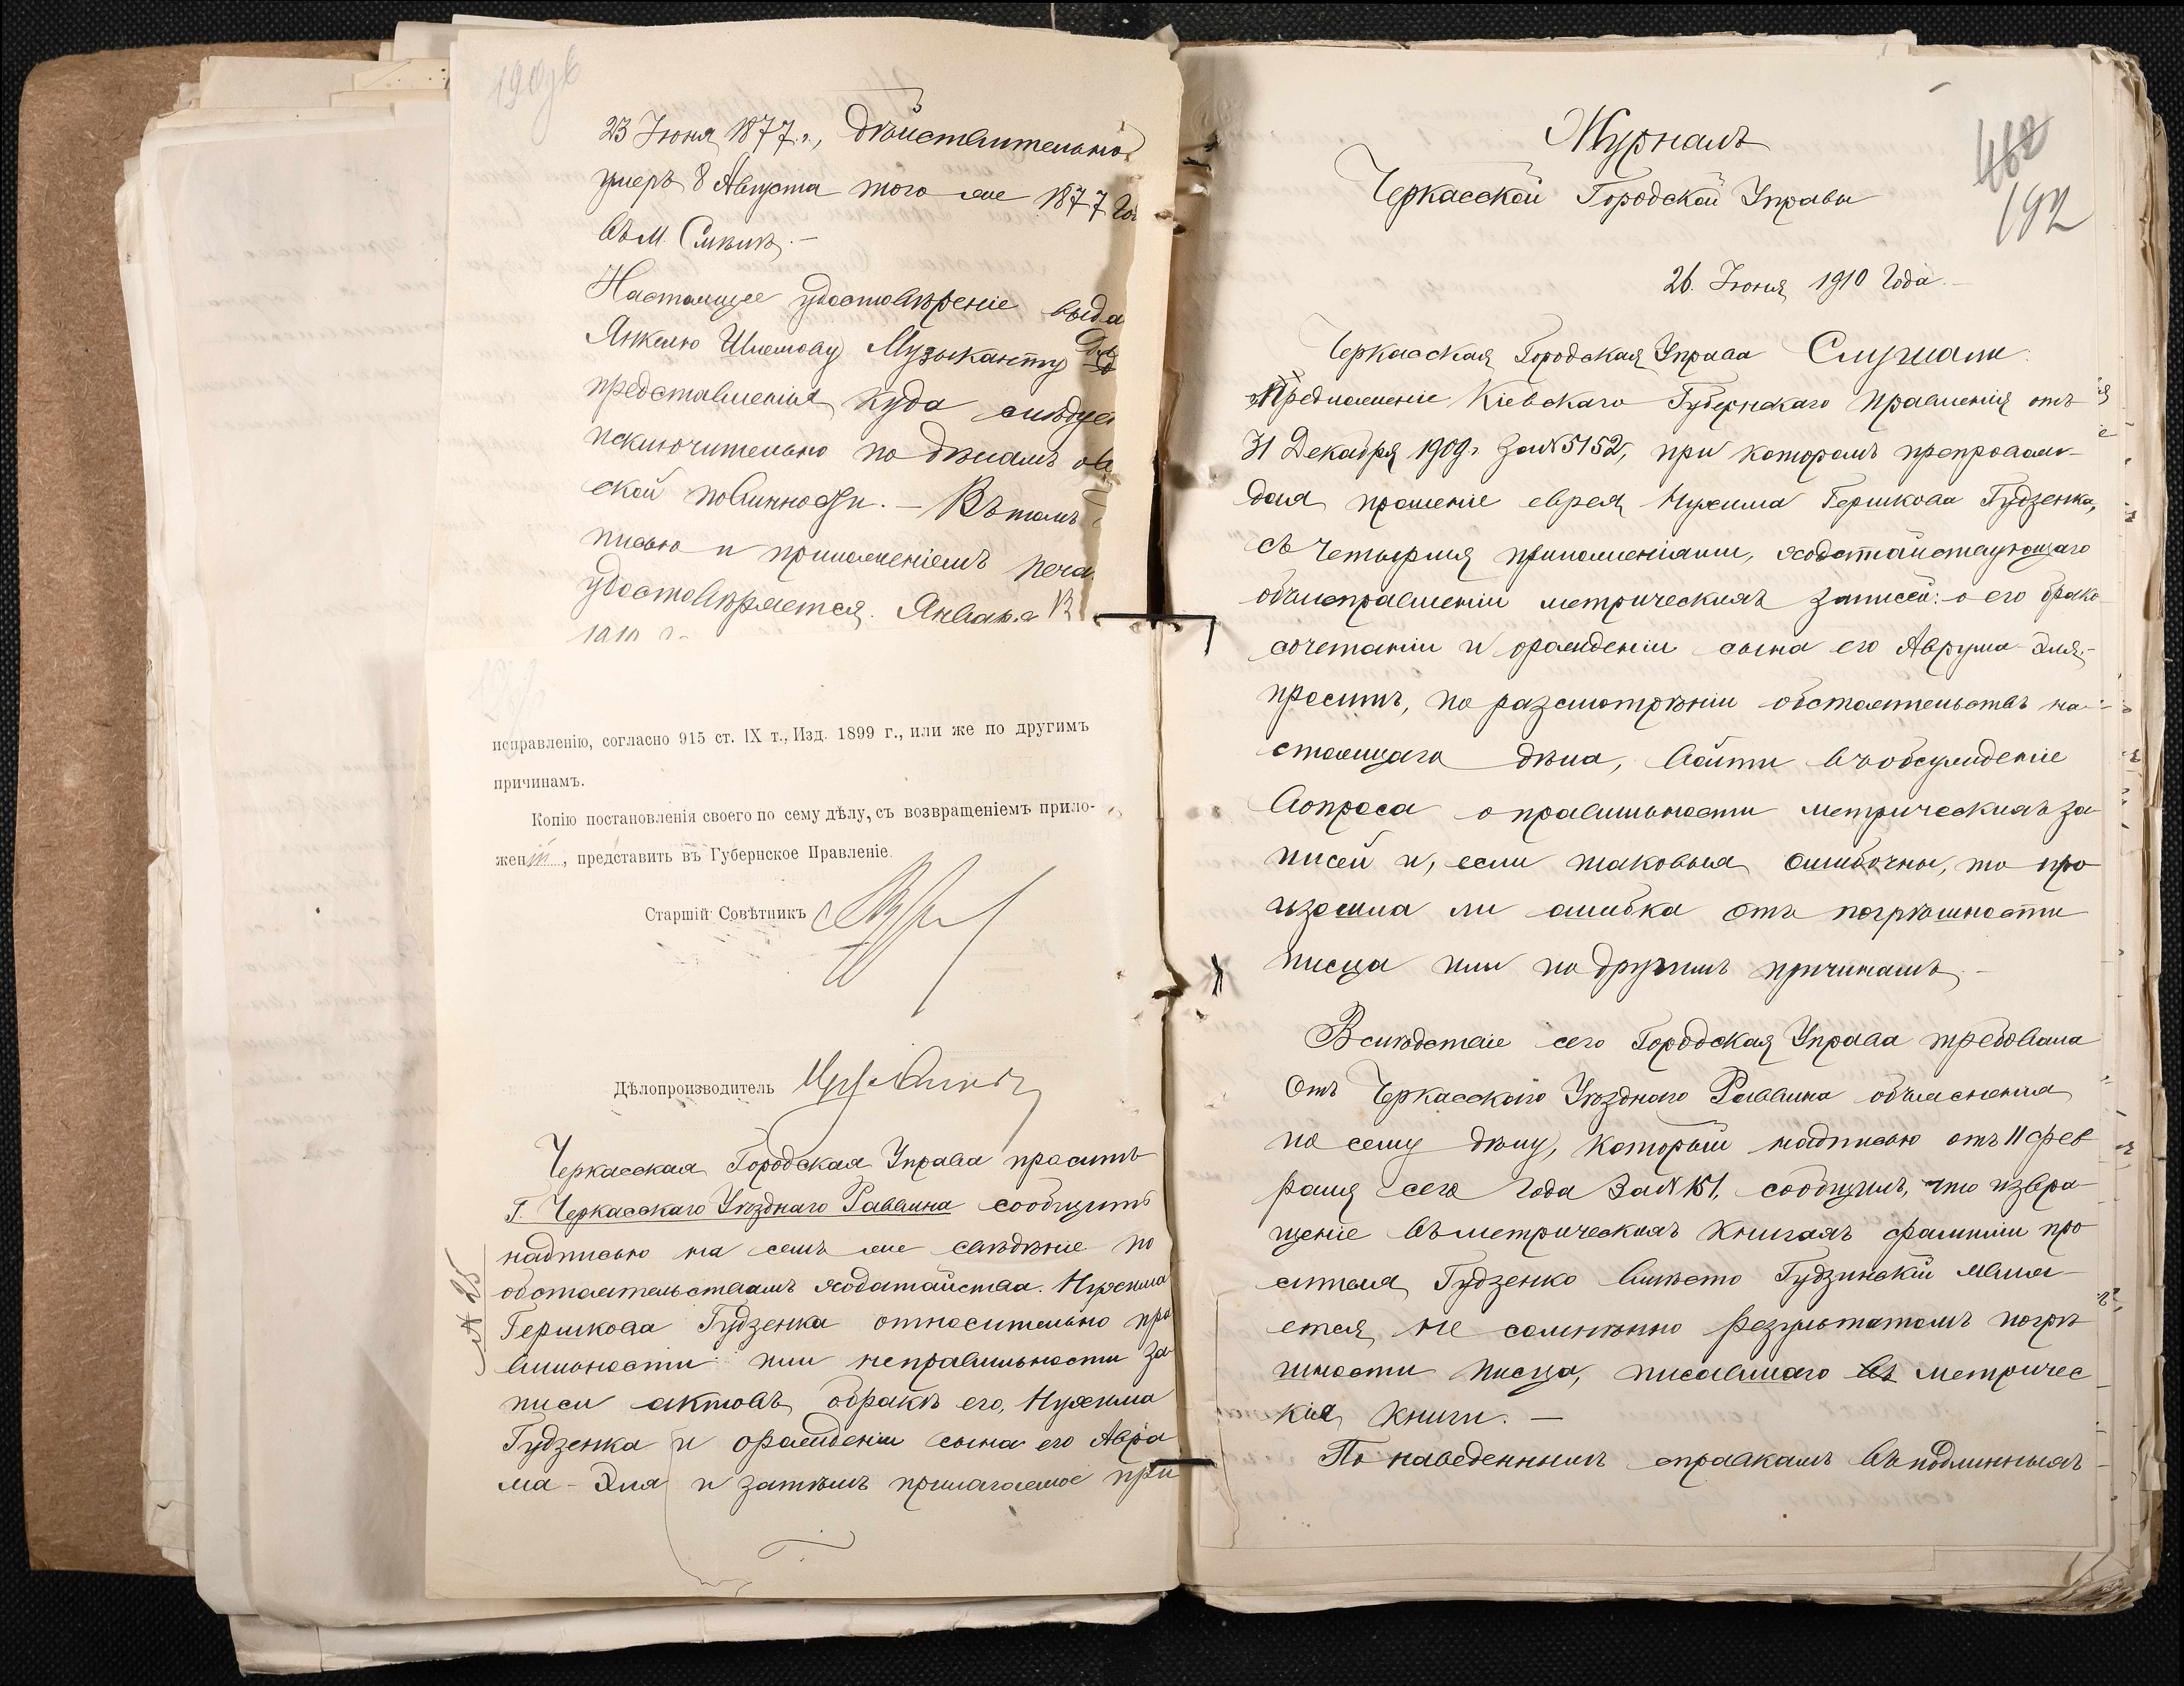 190об
23 Іюня 1877 г., дѣйствительно
умеръ 8 Августа того же 1877 го
въ м. Смѣлѣ. —
Настоящее удостовѣреніе выда
Янкелю Шлемову Музыканту для
представленія куда слѣдуе
исключительно по дѣламъ о в
ской повинности. — Въ томъ
писью и приложеніемъ печа
удостовѣряется. Января
1910 г.
исправленію, согласно 915 ст. IX т., Изд. 1899 г., или же по другимъ
причинамъ.
Копію постановленія своего по сему дѣлу, съ возвращеніемъ прило-
женій, представить въ Губернское Правленіе.
Старшій Совѣтникъ
Дѣлопроизводитель
Черкасская Городская Управа проситъ
Г. Черкасскаго Уѣзднаго Раввина сообщить
надписью на семъ же свѣдѣніе по
обстоятельствамъ ходатайства. Нухима
Гершкова Гудзенка относительно пра
вильности или неправильности за
писи актовъ о бракѣ его, Нухима
Гудзенка и о рожденіи сына его Авра
ма-Эля и затѣмъ прилагаемое при
№ 25
Журналъ
Черкасской Городской Управы
192
26. Іюня 1910 года. —
Черкасская Городская Управа Слушали:
Предложеніе Кіевскаго Губернскаго Правленія отъ
31 Декабря 1909 г. за № 5152, при которомъ препровож-
дая прошеніе еврея Нухима Гершкова Гудзенка,
съ четырмя приложеніями, ходатайствующаго
объ исправленіи метрическихъ записей: о его брако
сочетаніи и о рожденіи сына его Аврума-Эля, —
проситъ, по разсмотрѣніи обстоятельствъ на-
стоящаго дѣла, войти въ обсужденіе
вопроса о правильности метрическихъ за
писей и, если таковыя ошибочны, то про
изошла ли ошибка отъ погрѣшности
писца или по другимъ причинамъ. —
Вслѣдствіе сего Городская Управа требовала
отъ Черкасскаго Уѣзднаго Раввина объясненія
по сему дѣлу, который надписью отъ 11 фев
раля сего года за № 151, сообщилъ, что извра
щеніе въ метрическихъ книгахъ фамиліи про
сителя Гудзенко вмѣсто Гудзинскій явля
ется не сомнѣнно результатомъ погрѣ
шности писца, писавшаго въ метричес
кія книги. —
По наведеннымъ справкамъ въ подлинныхъ